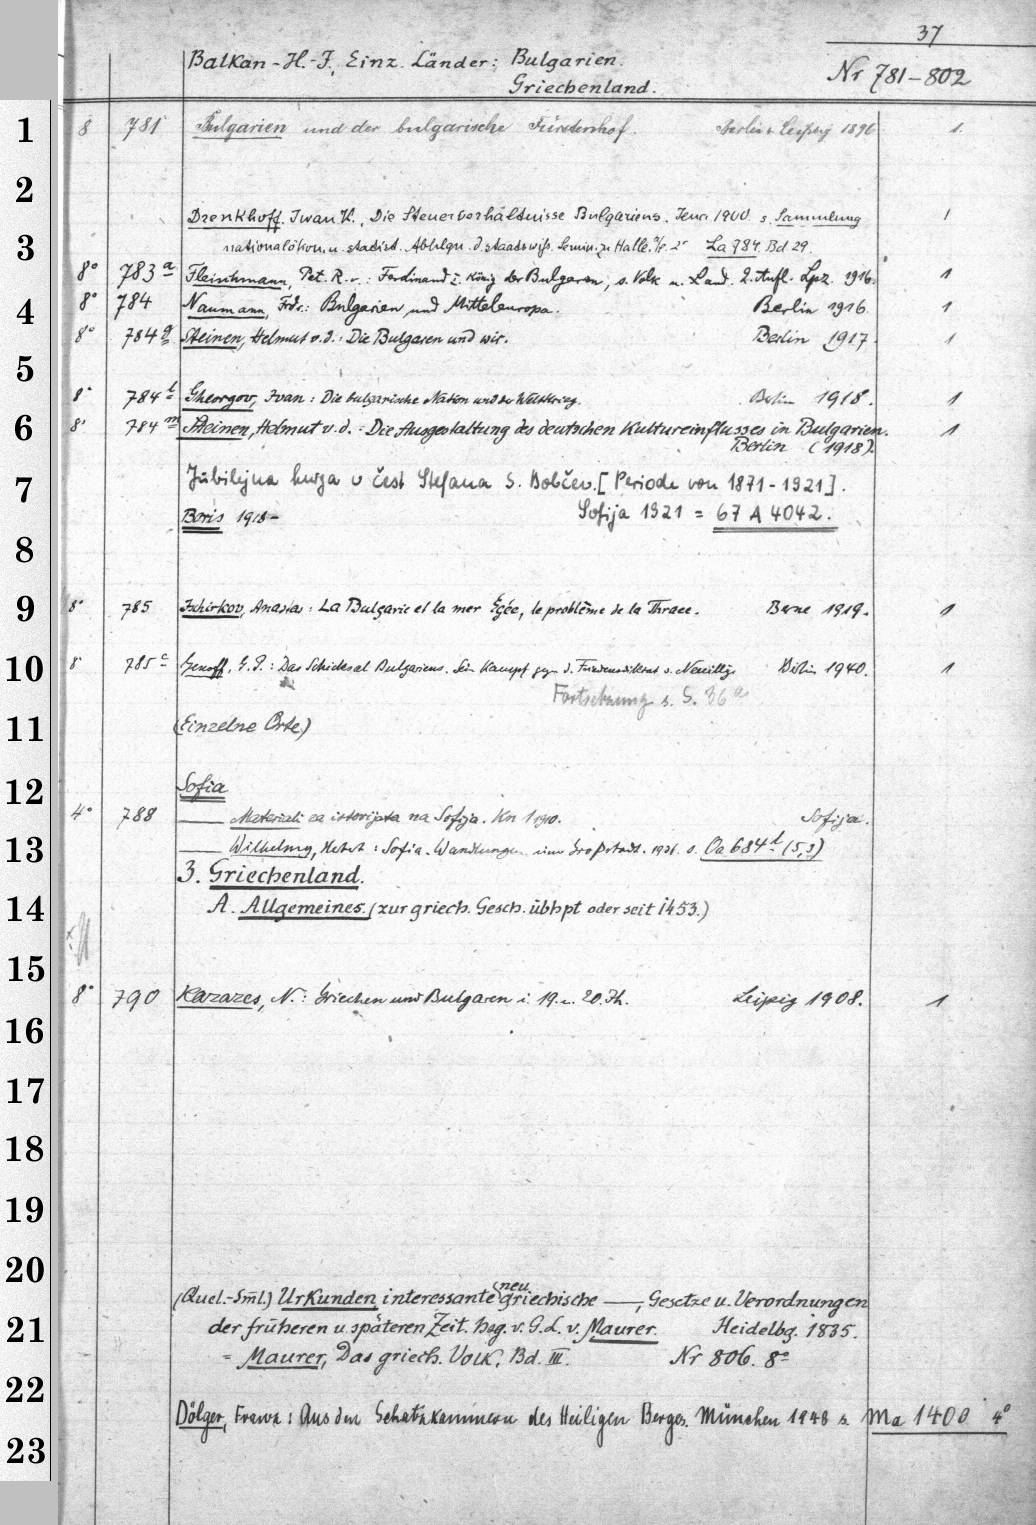 37
Balkan-H.-J., Einz. Länder: Bulgarien.
Griechenland.
Nr 781-802
1 8 781 Bulgarien und der bulgarische Fürstenhof. Berlin & Leipzig 1896 1.
2
Drenkhoff, Iwan K., Die Steuerverhältnisse Bulgariens. Jena 1900 s. Sammlung 1
3 nationalökon. u. statist. Abhlgn. d. staatswiss. Semin. z. Halle La 984, Bd 29.
8° 783 a Fleischmann, Pet. R. v.: Ferdinand I. König der Bulgaren, s. Volk u. Land. 2. Aufl. Lpz. 1916. 1
4 8° 784 Naumann, Frdr.: Bulgarien und Mitteleuropa. Berlin 1916. 1
8° 784 g Steinen, Helmut v. d.: Die Bulgaren und wir. Berlin 1917. 1
5
8° 784 l Gheorgov, Ivan: Die bulgarische Nation und der Weltkrieg. Berlin 1918. 1
6 8° 784 m Steinen, Helmut v. d.: Die Ausgestaltung des deutschen Kultureinflusses in Bulgarien. 1
Berlin (1918).
7 Jubilejna kniga v čest Stefana S. Bobčev. [Periode von 1871-1921].
Boris 1918- Sofija 1921 = 67 A 4042.
8
9 8° 785 Ischirkov, Anasta: La Bulgarie et la mer Égée, le problème de la Thrace. Berne 1919. 1
10 8° 785 c Genoff, G. P.: Das Schicksal Bulgariens. Sein Kampf gegen d. Friedensdiktat v. Neuilly. Berlin 1940. 1
Fortsetzung s. S. 36 a
11 (Einzelne Orte)
12 Sofia
4° 788 — Materiali za istorijata na Sofija. Kn 1 1910. Sofija.
13 — Wilhelmy, Herbert: Sofia. Wandlungen einer Großstadt. 1936 s. Oa 684 t (5,3)
3. Griechenland.
14 A. Allgemeines. (zur griech. Gesch. übhpt oder seit 1453.)
15
8° 790 Kazazes, N.: Griechen und Bulgaren i. 19. u. 20. Jh. Leipzig 1908. 1
16
17
18
19
20
(Quel.-Sml.) Urkunden, interessante neugriechische —, Gesetze u. Verordnungen
21 der früheren u. späteren Zeit. hsg. v. G. L. v. Maurer. Heidelbg. 1835.
= Maurer, Das griech. Volk, Bd. III. Nr 806. 8°
22
Dölger, Franz: Aus den Schatzkammern des Heiligen Berges. München 1948 s. Ma 1400 4°
23